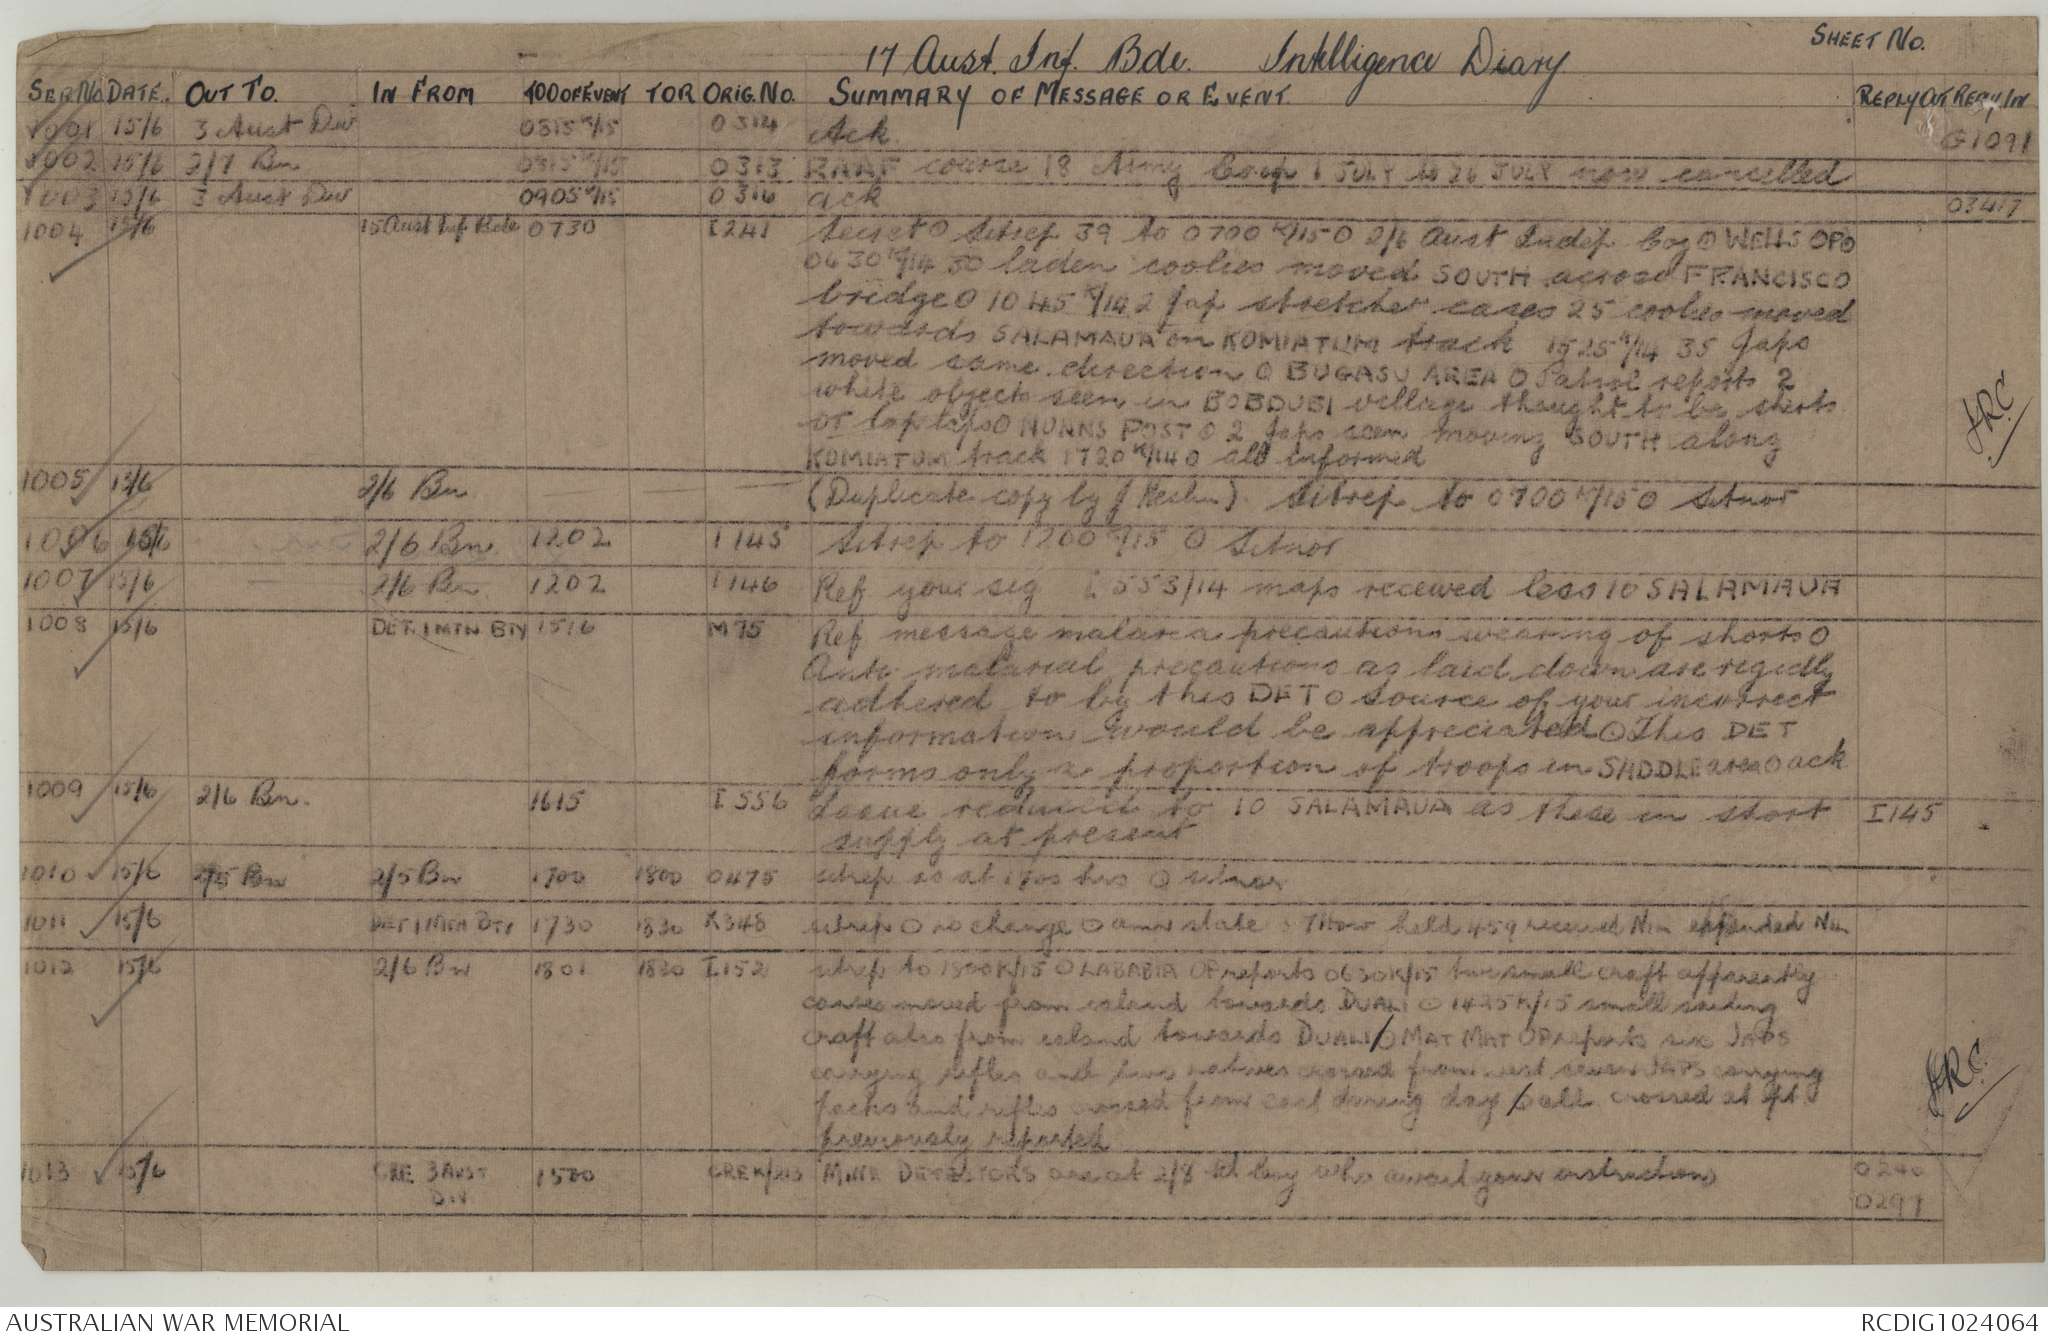 17 Aust. Inf. Bde. Intelligence Diary SHEET No.
SER No DATE. OUT TO. IN FROM TOO OF EVENT TOR ORIG. No. SUMMARY OF MESSAGE OR EVENT. REPLY OUT REPLY IN
1001 15/6 3 Aust Div 0815K/15 0314 Ack G1091
1002 15/6 2/7 Bn 0815K/15 0313 RAAF course 18 Army Coop 1 JULY to 26 JULY now cancelled
1003 15/6 3 Aust Div 0905K/15 0316 ack 03417
1004 15/6 15 Aust Inf Bde 0730 I241 Secret O Sitrep 39 to 0700K/15 O 2/6 Aust Indep Coy O WELLS OP O
0630K/14 30 laden coolies moved SOUTH across FRANCISCO
bridge O 1045K/14 2 Jap stretcher cases 25 coolies moved
towards SALAMAUA on KOMIATUM track 1525K/14 35 Japs
moved same direction O BUGASU AREA O Patrol reports 2
white objects seen in BOBDUBI village thought to be shirts
or lap laps O NUNNS POST O 2 Japs seen moving SOUTH along
KOMIATUM track 1720K/14 O all informed
JRC
1005 15/6 2/6 Bn (Duplicate copy by) Sitrep to 0700K/15 O Sitnor
1006 15/6 2/6 Bn. 1202 I145 Sitrep to 1200K/15 O Sitnor
1007 15/6 2/6 Bn. 1202 I146 Ref your sig I553/14 maps received less 10 SALAMAUA
1008 15/6 DET. 1 MTN BTY 1516 M75 Ref message malaria precautions wearing of shorts O
Anti malarial precautions as laid down are rigidly
adhered to by this DET O source of your incorrect
information would be appreciated O This DET
forms only a proportion of troops in SADDLE area O ack
1009 15/6 2/6 Bn. 1615 I556 Issue reduced to 10 SALAMAUA as these in short I145
supply at present
1010 15/6 2/5 Bn 2/5 Bn 1700 1800 0475 sitrep as at 1700 hrs O sitnor
1011 15/6 DET 1 MTN BTY 1730 1830 X348 sitrep O no change O amn state held 459 received Nin expended Nin
1012 15/6 2/6 Bn 1801 1830 I152 sitrep to 1800K/15 O LABABIA OP reports 0630K/15 two small craft apparently
canoes moved from island towards DUALI O 1425K/15 small sailing
craft also from island towards DUALI/O MAT MAT OP reports six JAPS
carrying rifles and two natives crossed from west seven JAPS carrying
packs and rifles crossed from east during day /O all crossed at pt
previously reported
JRC.
1013 15/6 CRE 3 AUST 1500 MINE DETECTORS are at 2/8 Fd Coy who await your instructions 0240
DIV 0297
AUSTRALIAN WAR MEMORIAL RCDIG1024064